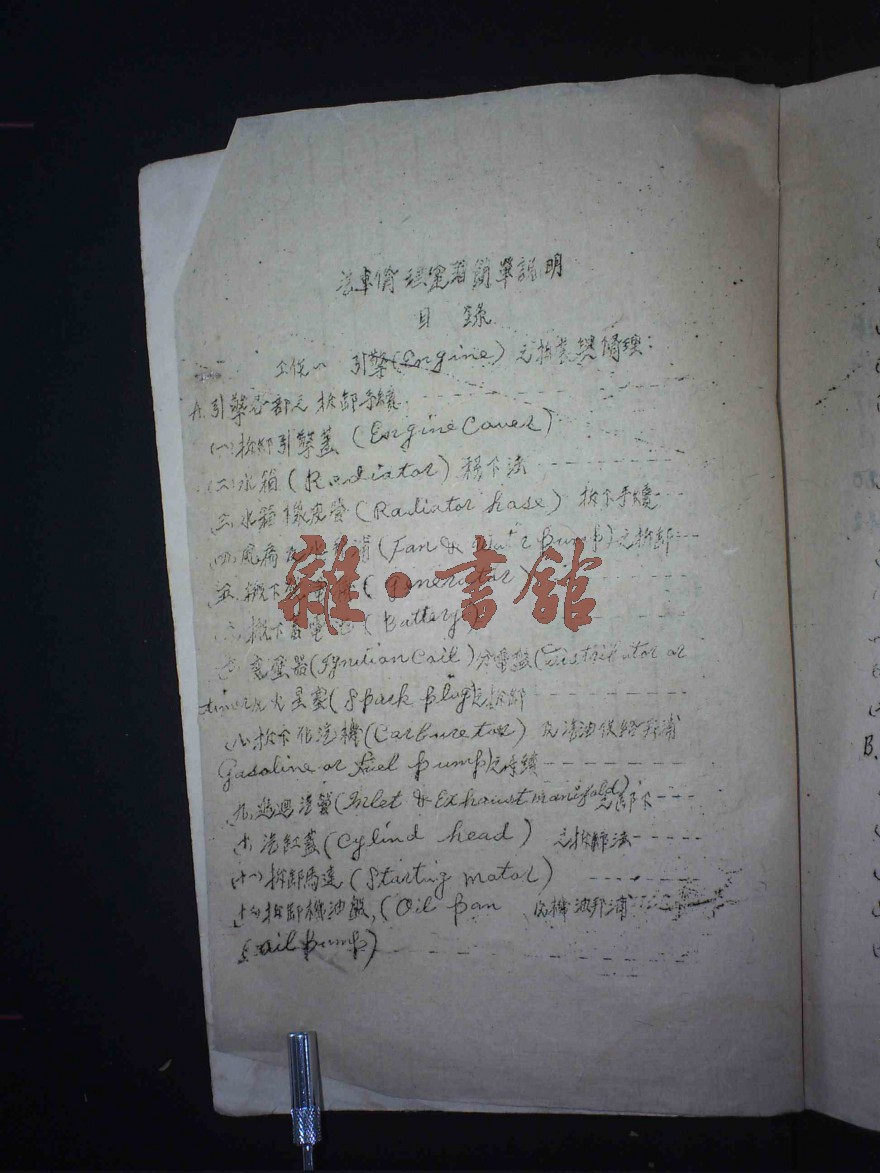 汽車修理電器簡單説明
目錄
引擎(Engine)之拆裝與修理:
A.引擎各部之拆卸手續
(一)拆卸引擎蓋(Engine Cover)
(二)水箱(Radiator)移下法
(三)水箱橡皮管(Radiator hase)拆下手續
(四)風扇及水邦浦(Fan & Water Pump)之拆卸
(五)搬下發電機(Generator)
(六)搬下蓄電池(Battery)
(七)變壓器(Ignition Coil)分電盤(Distributor or
timer)及火星塞(Spark Plug)之拆卸
(八)拆卸化汽機(Carburetor)及清油供給邦浦
Gasoline or Fuel Pump)之手續
(九)進迴汽管(Inlet & Exhaust manifold)之卸下
(十)汽缸蓋(Cylind head)之拆卸法
(十一)拆卸馬達(Starting motor)
(十二)拆卸機油盤,(Oil Pan 及機油邦浦
oil Pump)
雜·書館